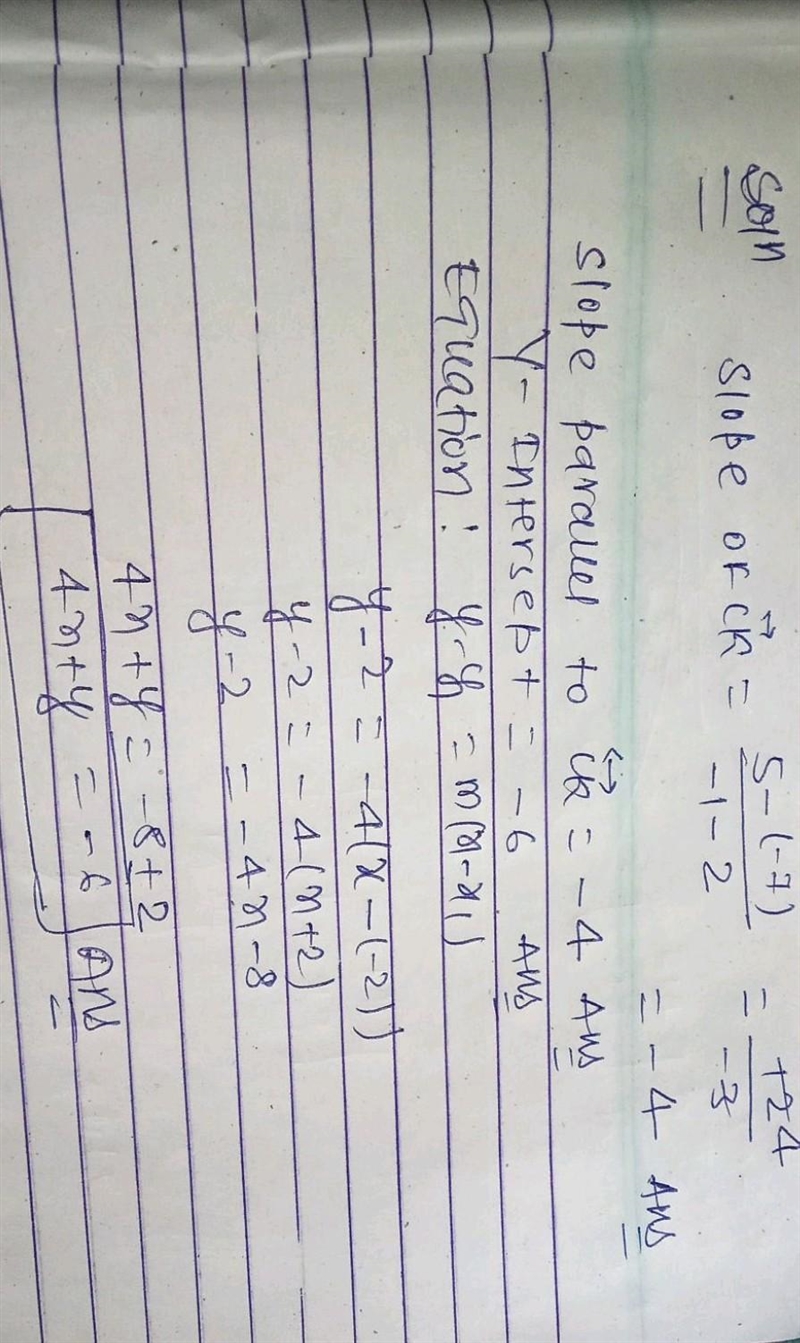 Soln Slope or CK = 5-(-7) / -1-2 = +24 / -3
= -4 Ans
Slope parallel to CK = -4 Ans
Y- Intersept = -6 Ans
Equation: y-y₁ = m(x-x₁)
y-2 = -4(x-(-2))
y-2 = -4(x+2)
y-2 = -4x-8
4x+y = -8+2
4x+y = -6 Ans